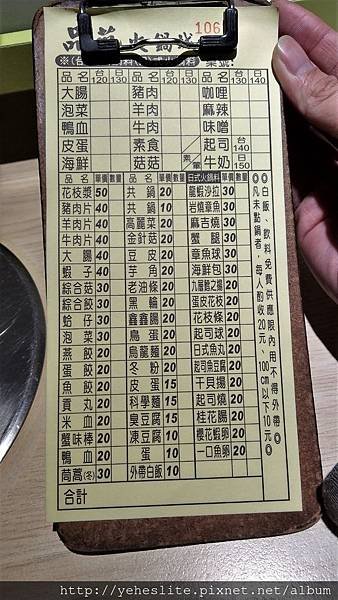 火鍋 106
品名 台120 日130 品名 台120 日130 品名 台120 日130
大腸 豬肉 咖哩
泡菜 羊肉 麻辣
鴨血 牛肉 味噌
皮蛋 素食 起司 台140
海鮮 菇菇 素 葷 牛奶 日150
品名 單價 數量 品名 單價 數量 日式火鍋料 單價 數量
花枝漿 50 共鍋 20 龍蝦沙拉 30
豬肉片 40 共鍋 10 岩燒章魚 30
羊肉片 40 高麗菜 20 麻吉燒 30
牛肉片 40 金針菇 20 蟹腿 30
大腸 40 豆皮 20 章魚球 30
蝦子 40 芋角 20 海鮮包 30
綜合菇 30 老油條 20 九層鮑之揚 20
綜合餃 30 黑輪 20 蛋皮花枝 20
蛤仔 30 鑫鑫腸 20 花枝條 20
泡菜 30 鳥蛋 20 起司球 20
燕餃 20 烏龍麵 20 日式魚丸 20
蛋餃 20 冬粉 20 起司魚豆腐 20
魚餃 20 皮蛋 15 干貝揚 20
貢丸 20 科學麵 15 起司燒 20
米血 20 臭豆腐 15 桂花腸 20
蟹味棒 20 凍豆腐 15 櫻花蝦卵 20
鴨血 20 蛋 10 一口魚卵 20
茼蒿(冬) 30 外帶白飯 10
合計
◎白飯、飲料免費供應限內用不得外帶◎
◎凡未點鍋者,每人酌收20元、100cm以下10元◎
http://yeheslite.pixnet.net/album